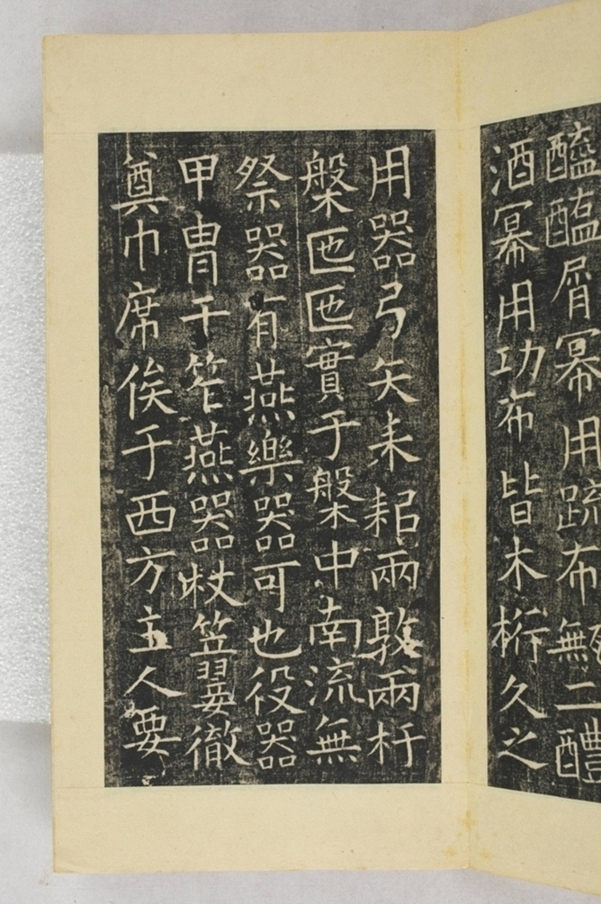 醯醢屑冪用疏布甒二醴
酒冪用功布皆木桁久之
用器弓矢耒耜兩敦兩杅
槃匜匜實于槃中南流無
祭器有燕樂器可也役器
甲冑干笮燕器杖笠翣徹
奠巾席俟于西方主人要